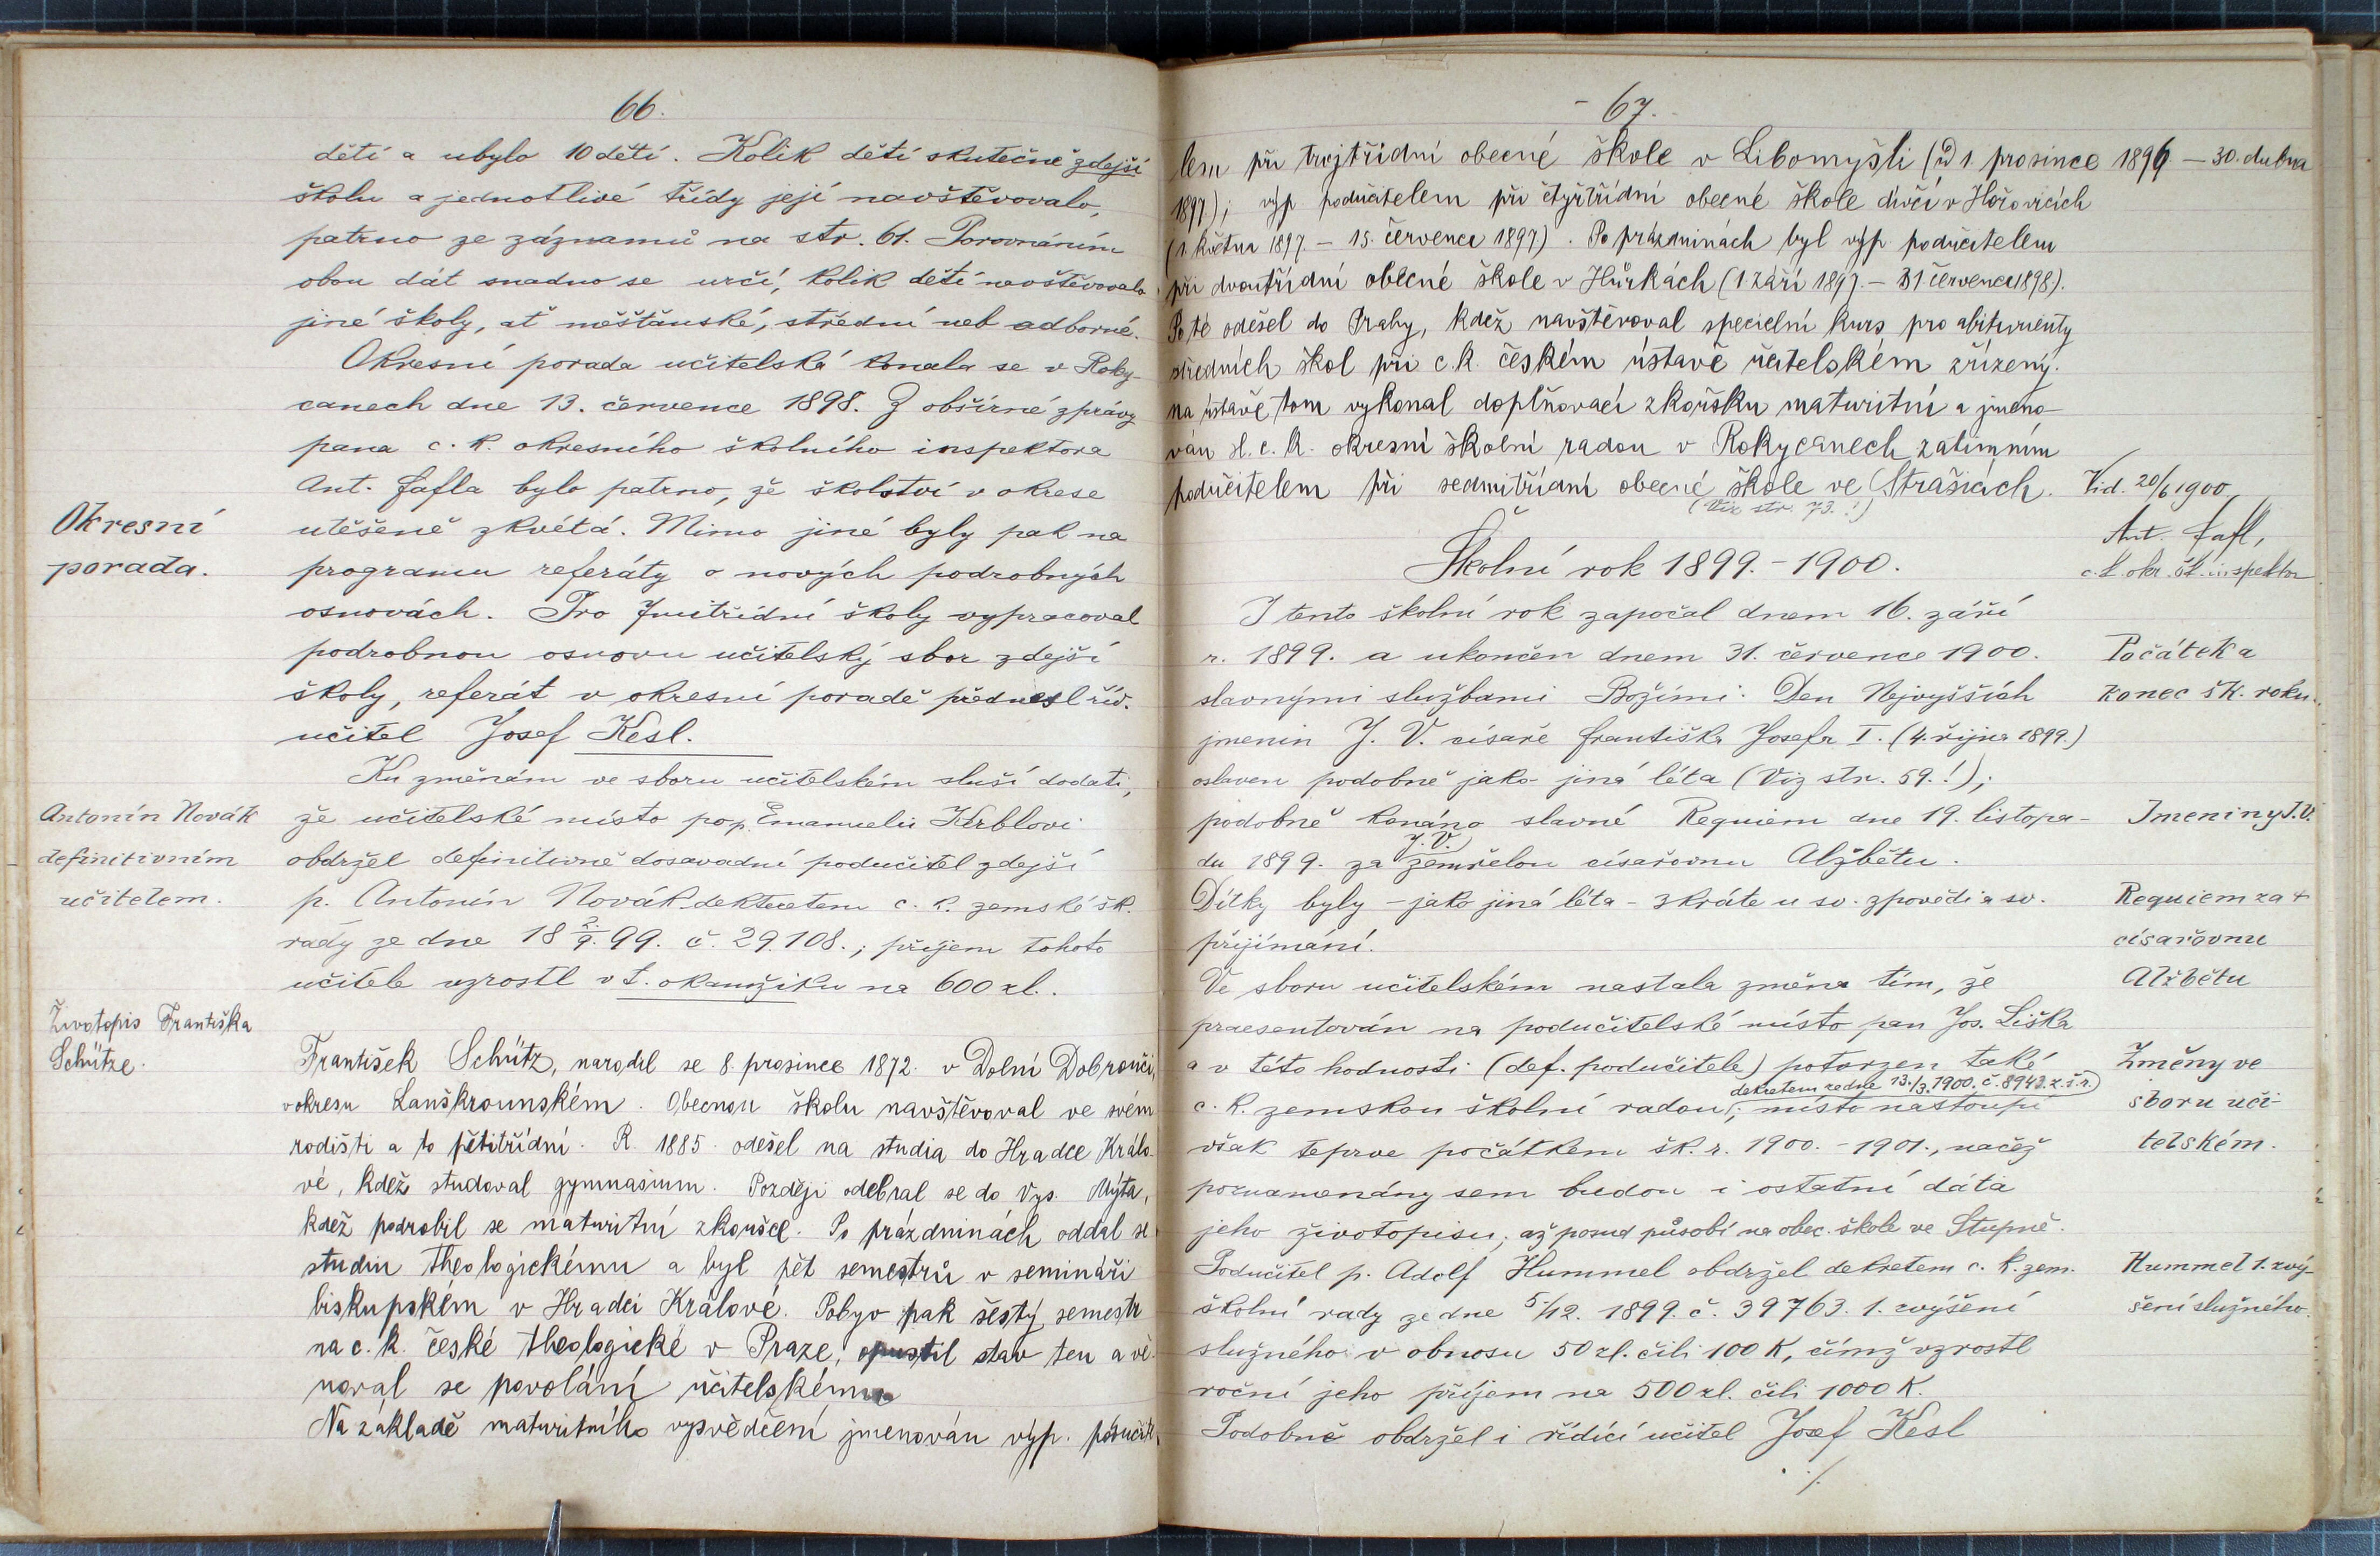 66.
dětí a ubylo 10 dětí. Kolik dětí skutečně zdejší
školu a jednotlivé třídy její navštěvovalo,
patrno ze záznamů na str. 61. Porovnáním
obou dát snadno se určí, kolik dětí navštěvovalo
jiné školy, ať měšťanské, střední neb odborné.
Okresní porada učitelská konala se v Roky-
canech dne 13. července 1898. Z obšírné zprávy
pana c. k. okresního školního inspektora
Ant. Fafla bylo patrno, že školství v okrese
Okresní
porada.
utěšeně zkvétá. Mimo jiné byly pak na
programu referáty o nových podrobných
osnovách. Pro 7mitřídní školy vypracoval
podrobnou osnovu učitelský sbor zdejší
školy, referát v okresní poradě přednesl říd.
učitel Josef Kesl.
Ku změnám ve sboru učitelském sluší dodati,
Antonín Novák
definitivním
učitelem.
že učitelské místo po p. Emanueli Krblovi
obdržel definitivně dosavadní podučitel zdejší
p. Antonín Novák dekretem c. k. zemské šk.
rady ze dne 18 2./9. 99. č. 29.108.; příjem tohoto
učitele vzrostl v t. okamžiku na 600 zl.
Životopis Františka
Schütze.
František Schütz, narodil se 8. prosince 1872. v Dolní Dobrouči,
v okresu Lanškrounském. Obecnou školu navštěvoval ve svém
rodišti a to pětitřídní. R. 1885. odešel na studia do Hradce Králo-
vé, kdež studoval gymnasium. Později odebral se do Vys. Mýta,
kdež podrobil se maturitní zkoušce. Po prázdninách oddal se
studiu theologickému a byl pět semestrů v semináři
biskupském v Hradci Králové. Pobyv pak šestý semestr
na c. k. české theologické v Praze, opustil stav ten a vě-
noval se povolání učitelskému
Na základě maturitního vysvědčení jmenován výp. podučite-
67.
lem při trojtřídní obecné škole v Libomyšli (od 1. prosince 1896 — 30. dubna
1897.); výp. podučitelem při čtyřtřídní obecné škole dívčí v Hořovicích
(1. května 1897. – 15. července 1897). Po prázdninách byl výp. podučitelem
při dvoutřídní obecné škole v Hůrkách (1 září 1897. – 31. července 1898).
Poté odešel do Prahy, kdež navštěvoval specielní kurs pro abiturienty
středních škol při c. k. českém ústavě učitelském zřízený.
Na ústavě tom vykonal doplňovací zkoušku maturitní a jmeno-
ván sl. c. k. okresní školní radou v Rokycanech zatímním
podučitelem při sedmitřídní obecné škole ve Strašicích.
(Viz str. 73.!)
Vid. 20/6 1900
Ant. Fafl,
c. k. okr. šk. inspektor
Školní rok 1899. – 1900.
I tento školní rok započal dnem 16. září
r. 1899. a ukončen dnem 31. července 1900.
Počátek a
konec šk. roku.
slavnými službami Božími. Den Nejvyšších
jmenin J. V. císaře Františka Josefa I. (4. října 1899.)
oslaven podobně jako jiná léta (Viz str. 59.!);
Jmeniny J. V.
podobně konáno slavné Requiem dne 19. listopa-
du 1899. za J. V. zemřelou císařovnu Alžbětu.
Requiem za +
císařovnu
Alžbětu
Dítky byly – jako jiná léta – 3kráte u sv. zpovědi a sv.
přijímání.
Ve sboru učitelském nastala změna tím, že
praesentován na podučitelské místo pan Jos. Liška
Změny ve
sboru uči-
telském.
a v této hodnosti (def. podučitele) potvrzen také
dekretem ze dne 13./3. 1900. č. 8943. z. š. r.)
c. k. zemskou školní radou; místo nastoupí
však teprve počátkem šk. r. 1900. – 1901., načež
poznamenány sem budou i ostatní dáta
jeho životopisu; až posud působí na obec. škole ve Stupně.
Podučitel p. Adolf Hummel obdržel dekretem c. k. zem.
Hummel 1. zvý-
šení služného.
školní rady ze dne 5/12. 1899. č. 39763. 1. zvýšení
služného v obnosu 50 zl. čili 100 K, čímž vzrostl
roční jeho příjem na 500 zl. čili 1000 K.
Podobně obdržel i řídící učitel Josef Kesl
./.